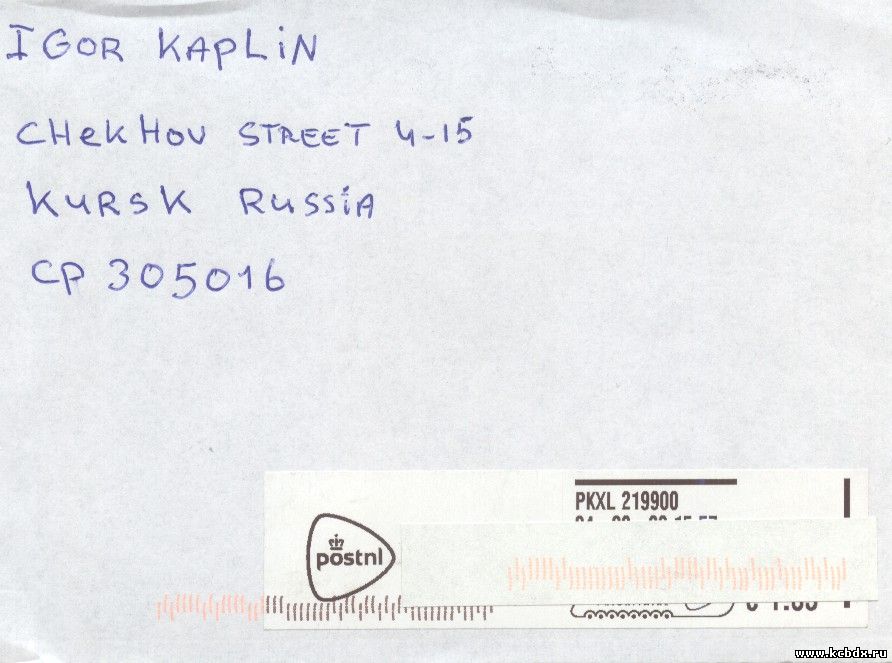 IGOR KAPLIN
CHEKHOV STREET 4-15
KURSK RUSSIA
CP 305016
PKXL 219900
postnl
www.kcbdx.ru